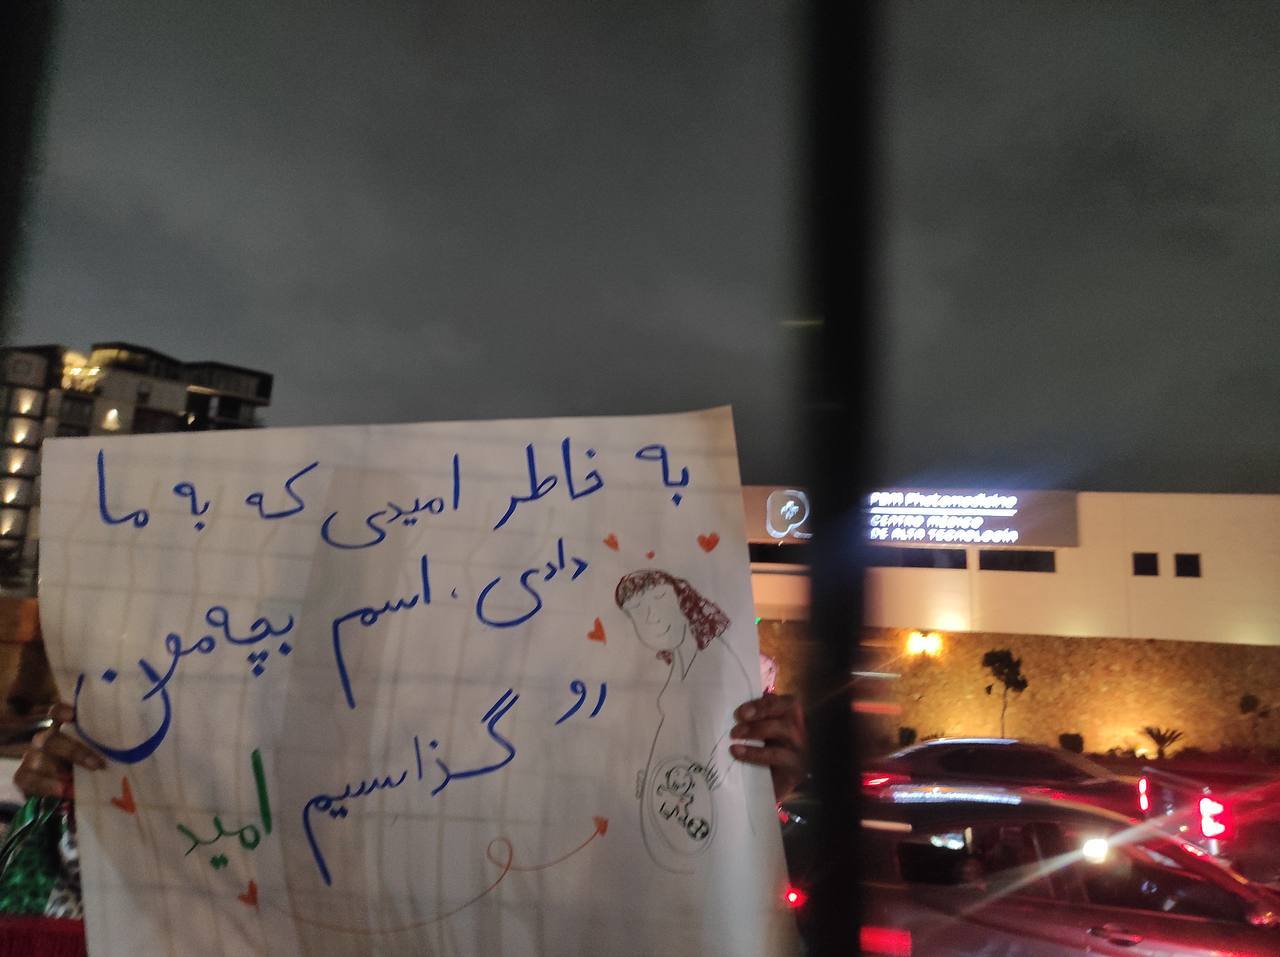 به خاطر امیدی که به ما
دادی، اسم بچه‌مون
رو گذاسیم امید
PBM Photomedicine
CENTRO MÉDICO
DE ALTA TECNOLOGÍA